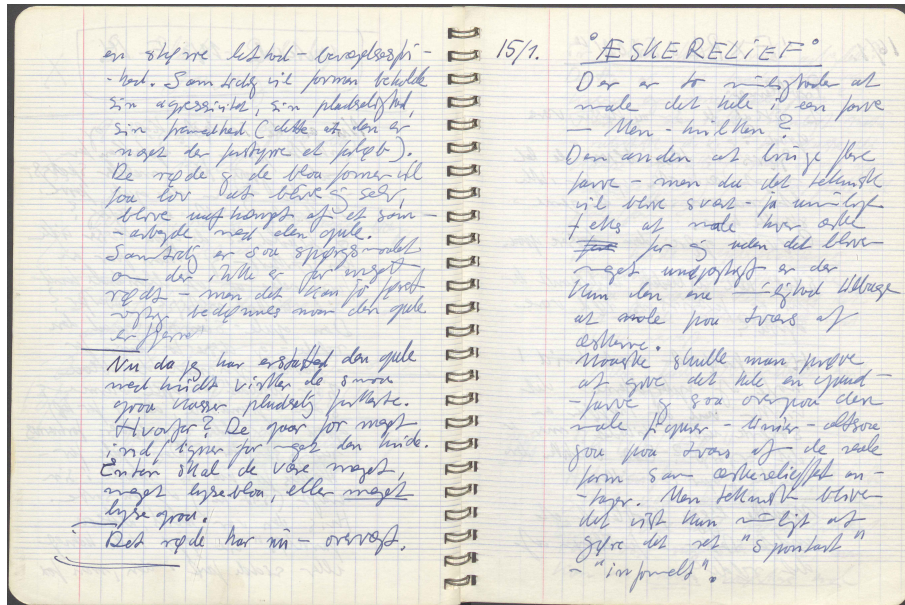 en større lethed - bevægelsespi-
hed. Samtidig vil formen beholde
sin agressivitet, sin pludselighed,
sin fremadhed (dette at den er
noget der forstyrre et forløb).
De røde og de blaa former vil
faa lov at blive sig selv,
blive uafhængt af et sam-
-arbejde med den gule.
Samtidig er saa spørgsmaalet
om der ikke er for meget
rødt - men det kan jo først
rigtig bedømmes naar den gule
er fjernet
Nu da jeg har erstattet den gule
med hvidt virker de smaa
graa kasser pludselig forkerte.
Hvorfor? De gaar for meget
ind, ligner for meget den hvide.
Enten skal de være meget,
meget lyseblaa, eller meget
lyse graa.
Det røde har nu - overvægt.
15/1. "ÆSKERELIEF"
Der er to muligheder at
male det hele i een farve
- Men - hvilken?
Den anden at bruge flere
farve - men da det teknisk
vil blive svært - ja umuligt
f eks at male hver æske
for sig uden det bliver
meget unøjagtigt er der
kun den ene mulighed tilbage
at male paa tværs af
æskerne.
Maaske skulle man prøve
at give det hele en grund-
-farve og saa ovenpaa den
male figurer - linier - altsaa
gaa paa tværs af de reale
form som æskerelieffet an-
-tager. Men teknisk bliver
det vist kun muligt at
gøre det ret "spontant"
- "informelt".